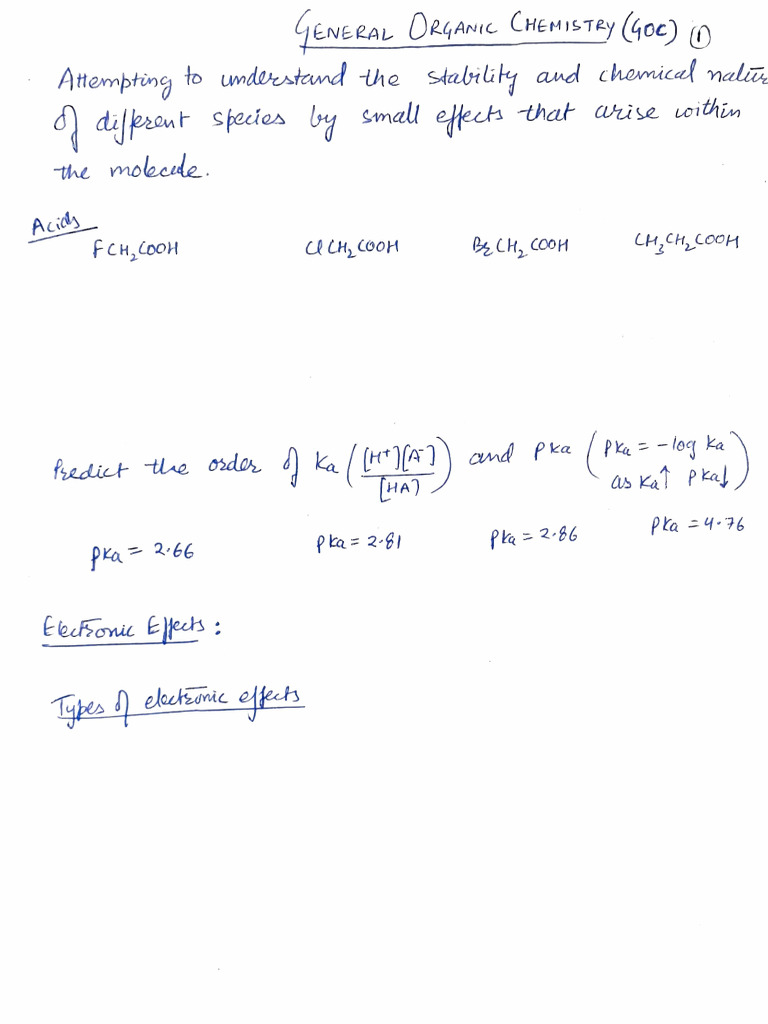 GENERAL ORGANIC CHEMISTRY (GOC) ①
Attempting to understand the stability and chemical natur
of different species by small effects that arise within
the molecule.
Acids
FCH₂COOH ClCH₂COOH BrCH₂COOH CH₃CH₂COOH
Predict the order of Ka ([H⁺][A⁻]/[HA]) and pKa (pKa = -log Ka
as Ka↑ pKa↓)
pKa = 2.66 pKa = 2.81 pKa = 2.86 pKa = 4.76
Electronic Effects :
Types of electronic effects